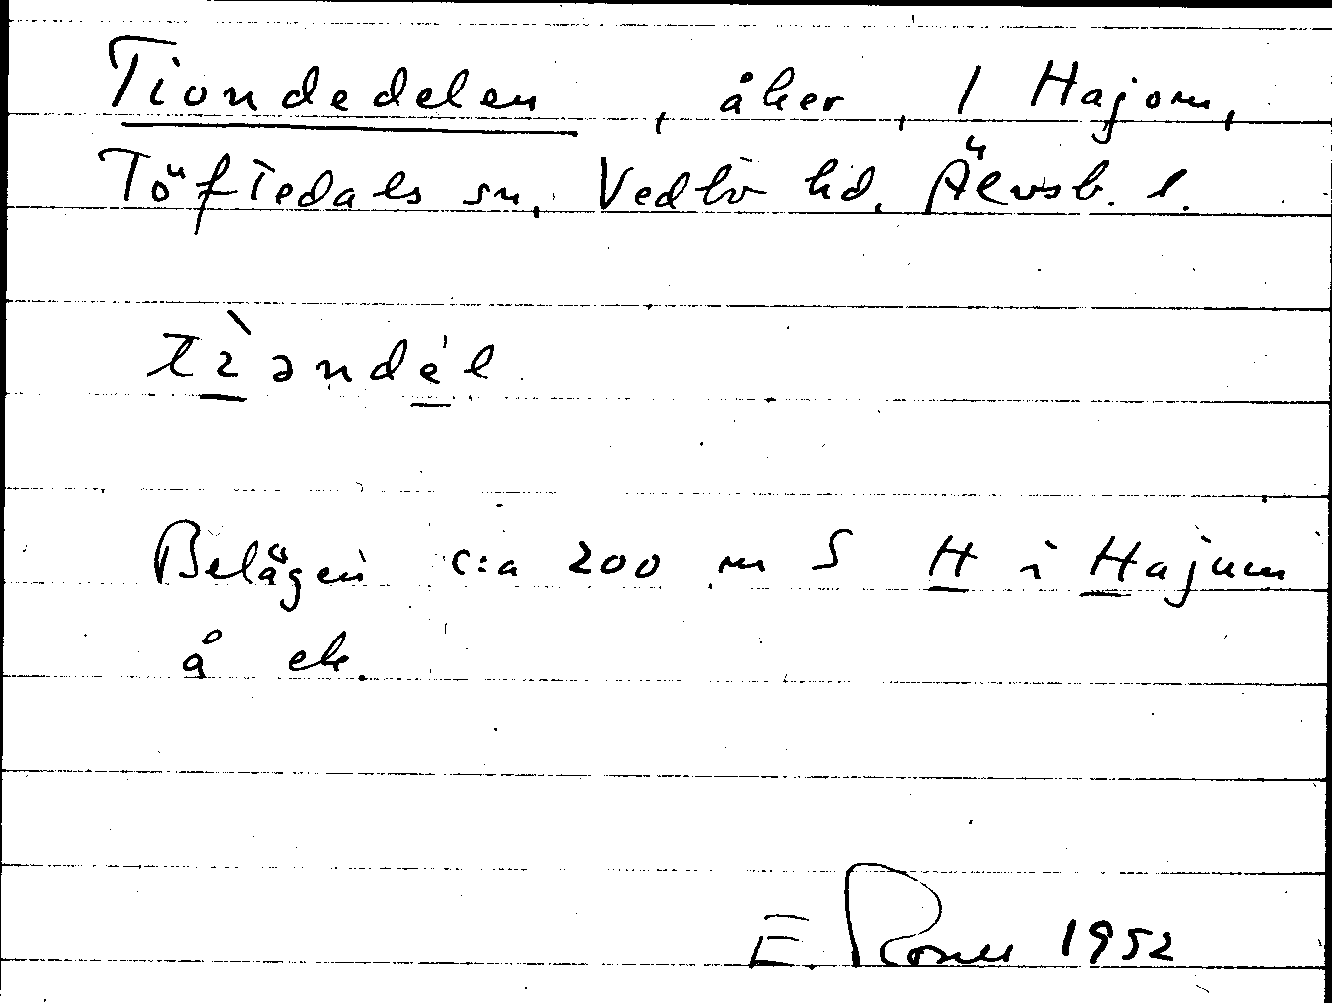 Tiondedelen, åker, 1 Hajom,
Töftedals sn, Vedbo hd. Älvsb. l.
tı̀əndél
Belägen c:a 200 m S H i Hajum
å ek.
E. Rosell 1952